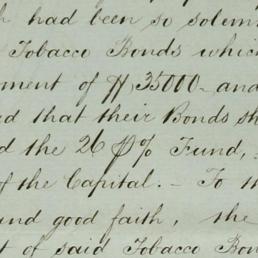 had been so solemn
Tobacco Bonds which
ment of $35000 - and
d that their Bonds sh
d the 26 P% Fund,
of the Capital. - To th
und good faith, the
t of said Tobacco Bon